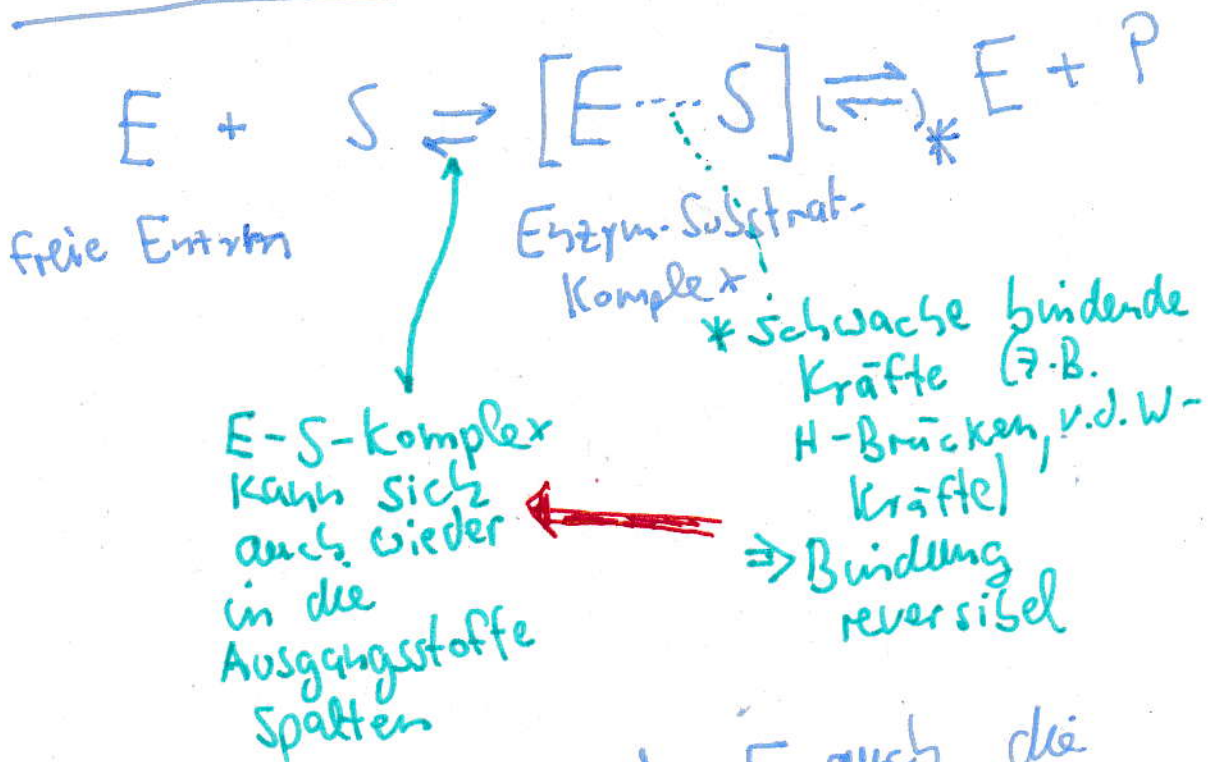 E + S ⇌ [E ···· S] (⇌)* E + P
freie Enzym
Enzym-Substrat-
Komplex
* schwache bindende
Kräfte (z.B.
H-Brücken, v.d.W-
Kräfte)
⇒ Bindung
reversibel
E-S-Komplex
kann sich
auch wieder
in die
Ausgangsstoffe
spalten
E auch die